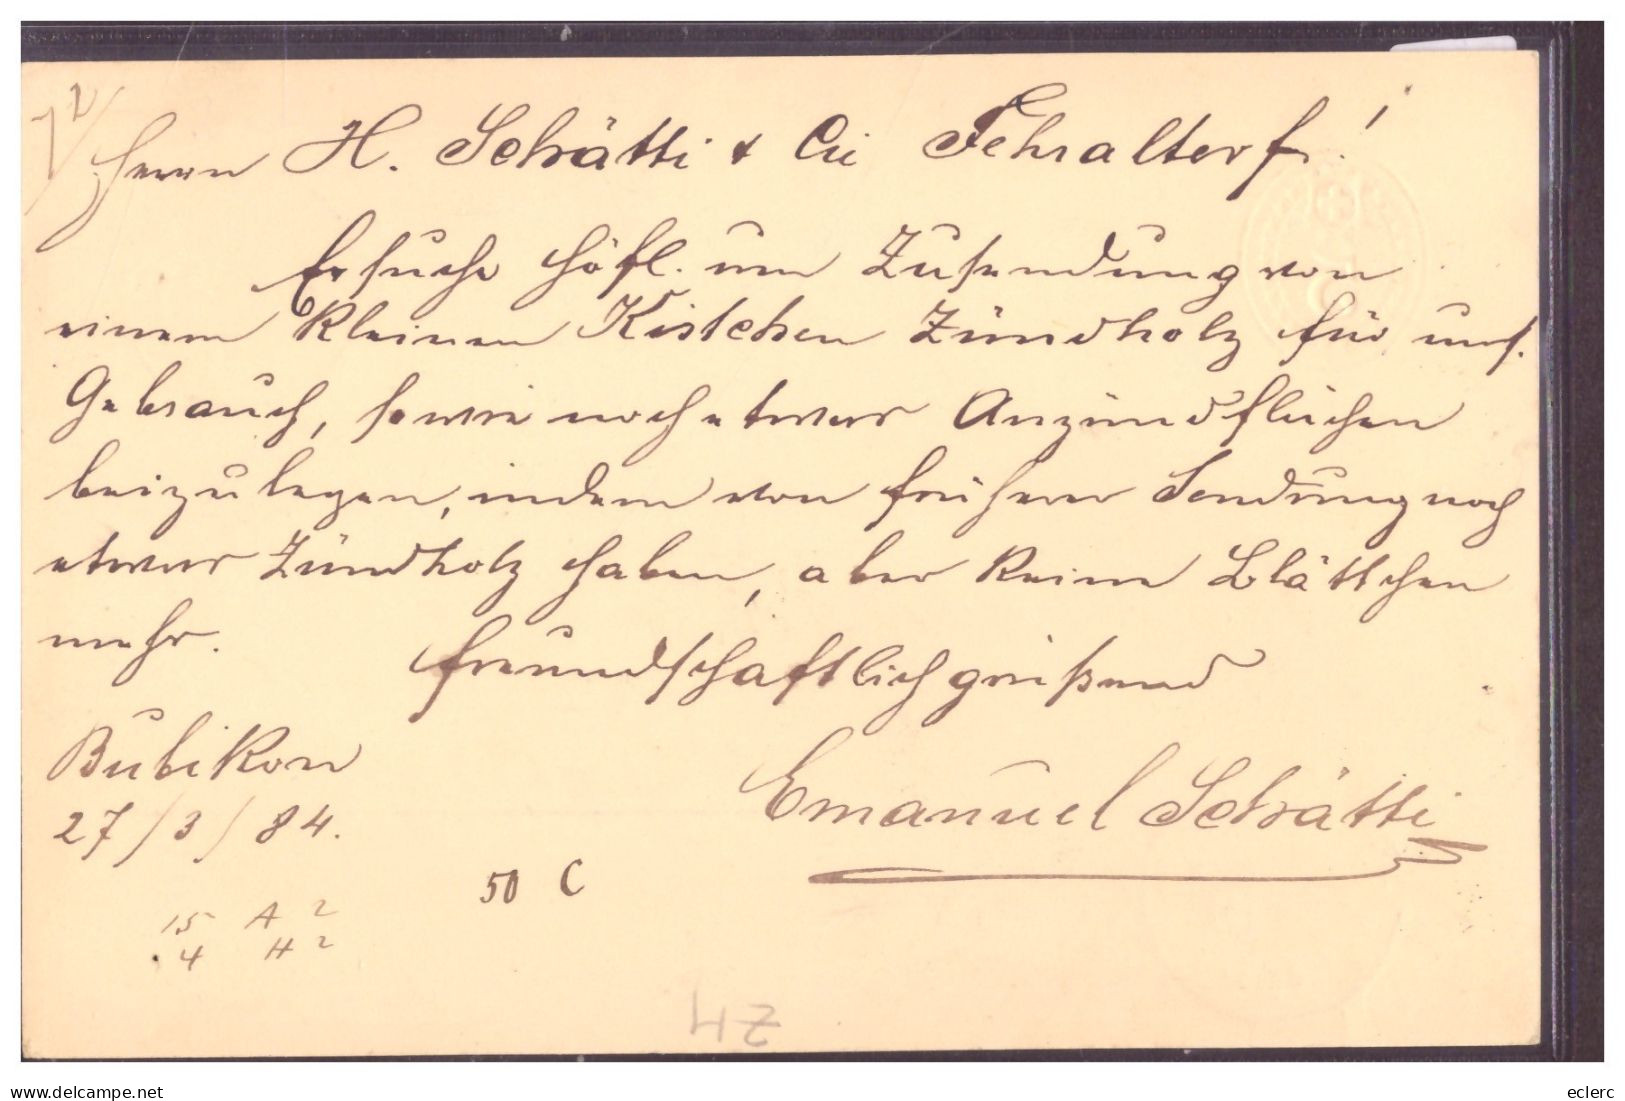 Herrn H. Schätti & Cie Fehraltorf!
Ersuche höfl. um Zusendung von
einem kleinen Kistchen Zündholz für uns.
Gebrauch, sowie noch etwas Anzündflächen
beizulegen, indem von früherer Sendung noch
etwas Zündholz haben, aber keine Blättchen
mehr.
freundschaftlich grüßend
Bubikon
27/3/84.
Emanuel Schätti
50 C
15 A 2
4 H 2
HZ
delcampe.net
eclerc